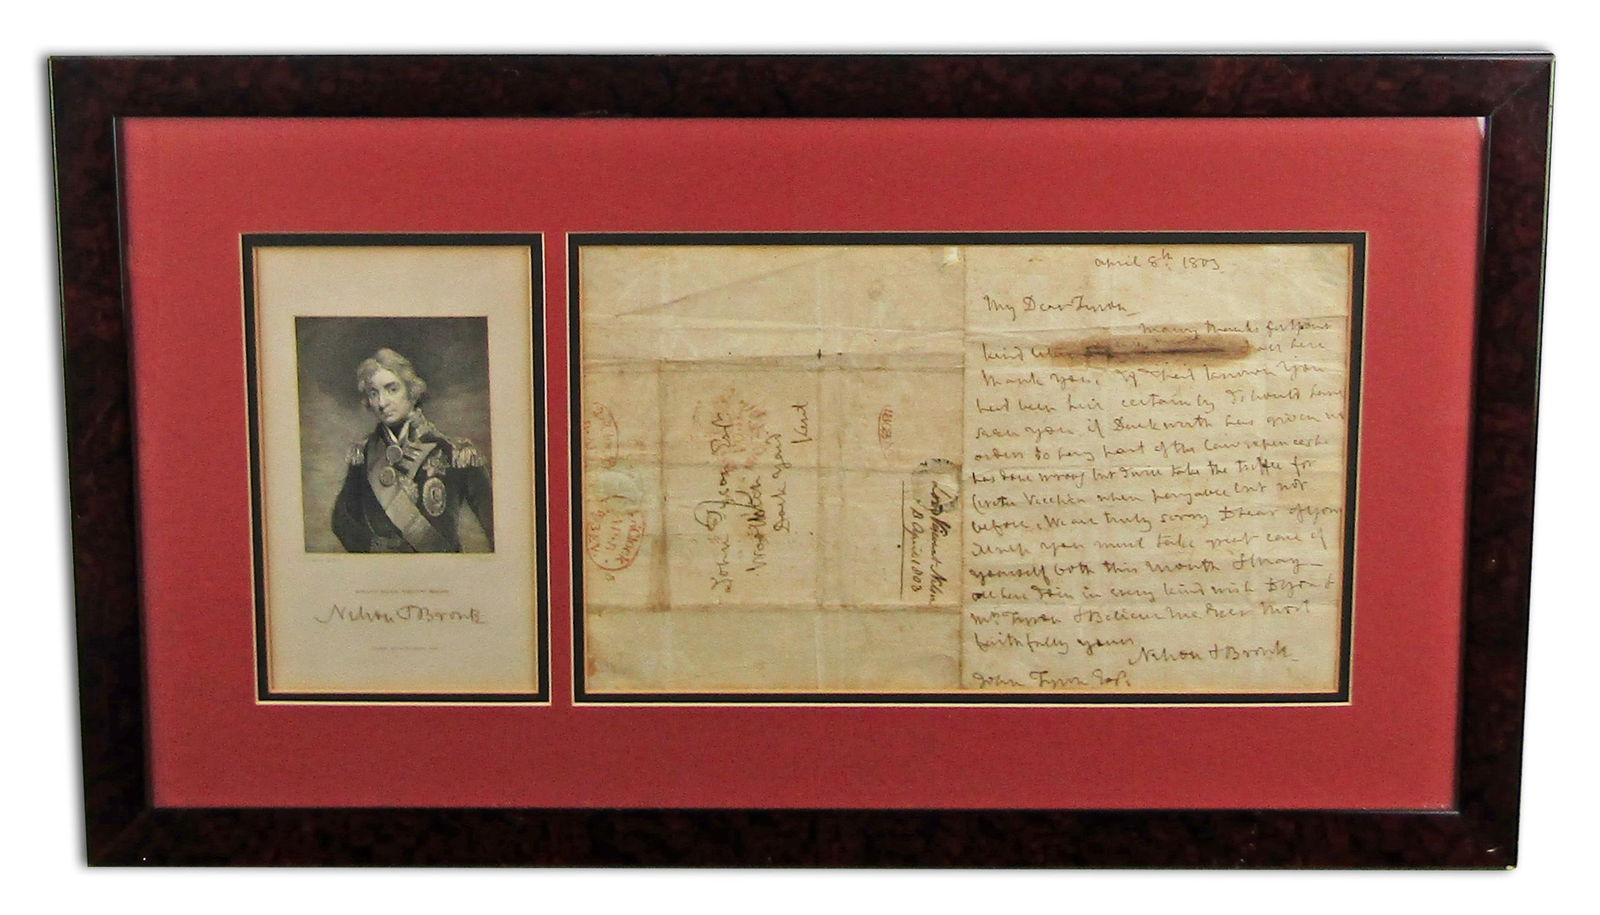 Nelson & Bronte
John Tyson Esqr
Woolwich
Dock Yard
Kent
Lord Viscount Nelson
8 April 1803
April 8th 1803
My Dear Tyson
Many thanks for your
kind here
thank you, if I had known you
had been here certainly I should have
seen you if Duckworth has given no
orders to pay part of the Law expences he
has done wrong but I will take the triffle for
Civita Vecchia when payable but not
before, We are truly sorry to hear of your
you must take great care of
yourself both this month & May
all here Join in every kind wish to you &
Mrs Tyson & Believe me Ever Most
faithfully yours
Nelson & Bronte
John Tyson Esqr